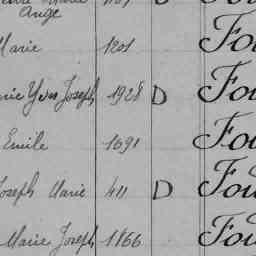 Ange
Marie 1201 Fou
Marie Yves Joseph 1928 D Fou
Emile 1691 Fou
Joseph Marie 411 D Fou
Marie Joseph 1866 Fou